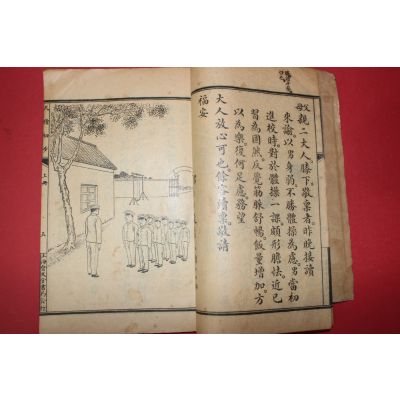 父母親二大人膝下。敬稟者。昨晚接讀
來諭。以男身弱。不勝體操為慮。男當初
進校時。對於體操一課。頗形膽怯。近已
習為固然。反覺筋脈舒暢。飯量增加。方
以為樂。復何足慮。務望
大人放心可也。餘容續稟。敬請
福安
上冊
五